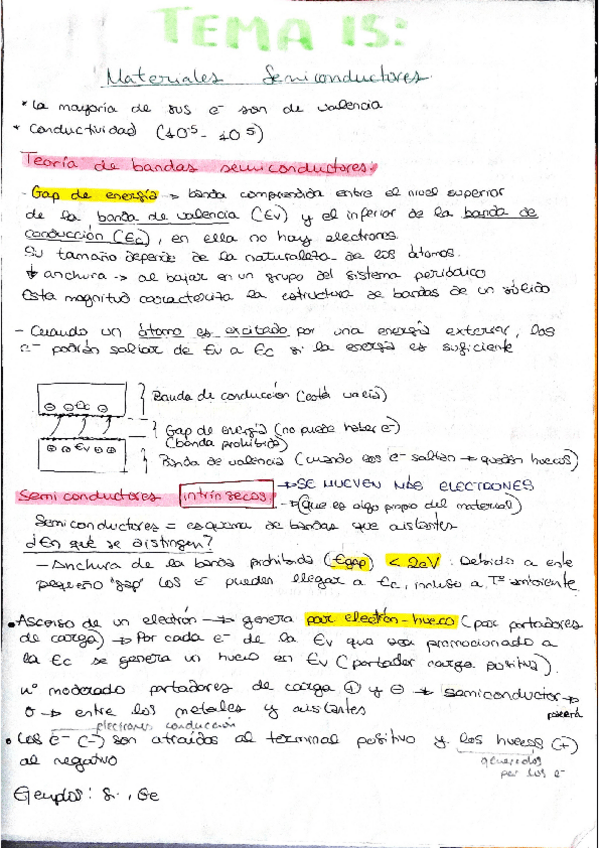 TEMA 15:
Materiales Semiconductores.
* La mayoría de sus e⁻ son de valencia
* Conductividad (10⁻⁵ - 10⁵)
Teoría de bandas semiconductores.
- Gap de energía → banda comprendida entre el nivel superior
de la banda de valencia (Ev) y el inferior de la banda de
conducción (Ec), en ella no hay electrones.
Su tamaño depende de la naturaleza de los átomos.
↓ anchura → al bajar en un grupo del sistema periódico
Esta magnitud caracteriza la estructura de bandas de un sólido
- Cuando un átomo es excitado por una energía exterior, los
e⁻ podrán saltar de Ev a Ec si la energía es suficiente
Banda de conducción (está vacía)
Gap de energía (no puede haber e⁻)
(banda prohibida)
Banda de valencia (cuando los e⁻ saltan → quedan huecos)
Semiconductores intrínsecos → SE MUEVEN MÁS ELECTRONES
→ (Que es algo propio del material)
Semiconductores = esquema de bandas que aislantes
¿En qué se distingen?
- Anchura de la banda prohibida (Egap) < 2eV. Debido a este
pequeño "gap" los e⁻ pueden llegar a Ec, incluso a Tª ambiente
• Ascenso de un electrón → genera par electrón-hueco (par portadores
de carga) → Por cada e⁻ de la Ev que sea promocionado a
la Ec se genera un hueco en Ev (portador carga positiva).
nº moderado portadores de carga ⊕ y ⊖ → semiconductor →
σ → entre los metales y aislantes
electrones conducción
• Los e⁻ (-) son atraídos al terminal positivo y los huecos (+)
al negativo
generados
por los e⁻
Ejemplos: Si, Ge